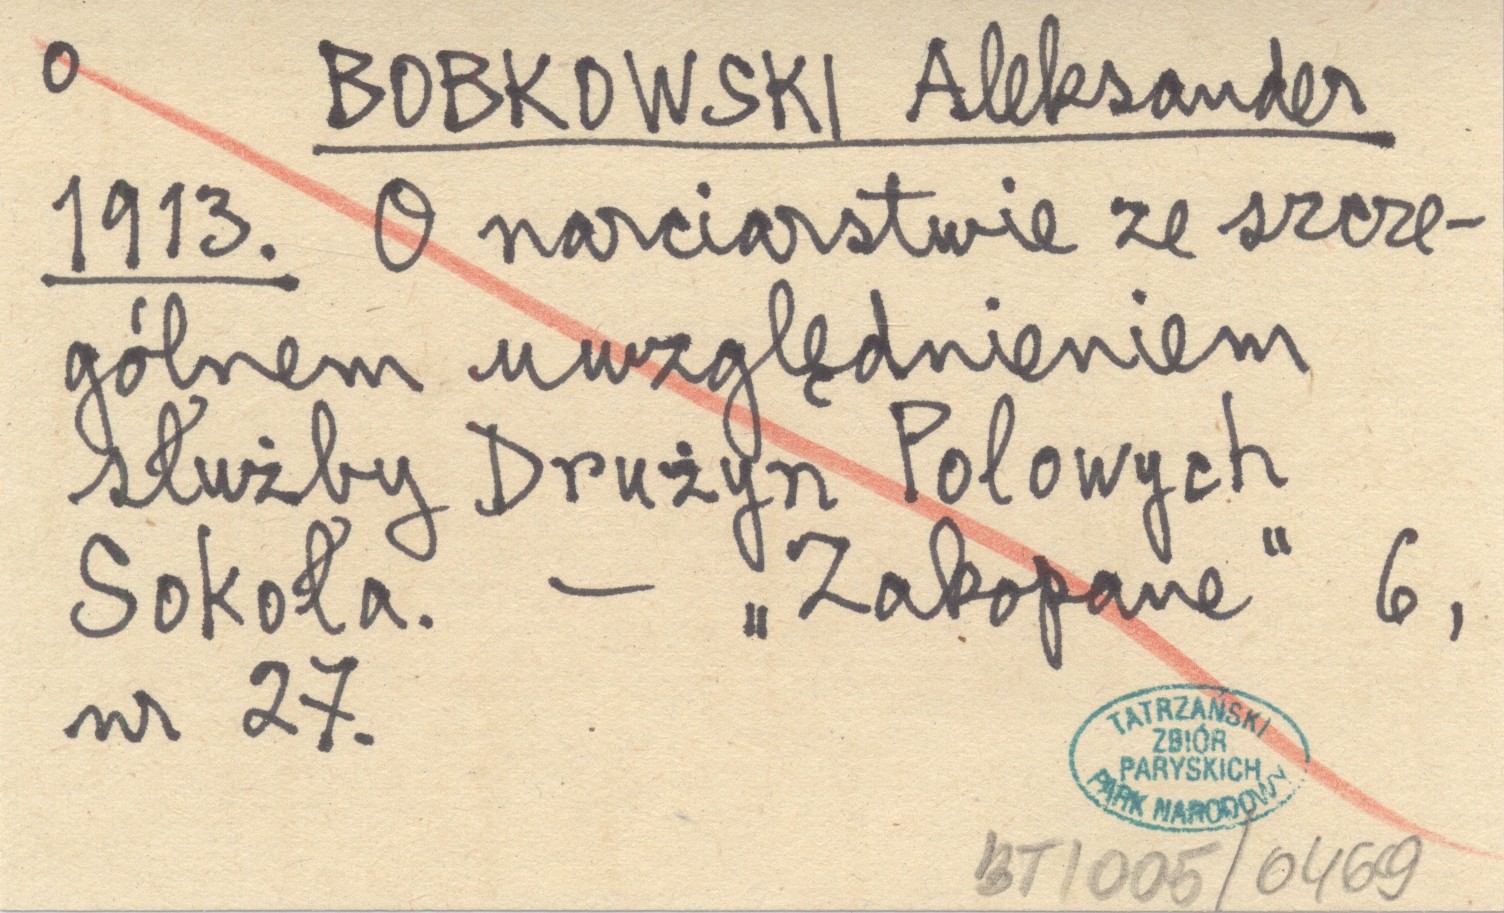 o BOBKOWSKI Aleksander
1913. O narciarstwie ze szcze-
gólnem uwzględnieniem
służby Drużyn Polowych
Sokoła. — „Zakopane" 6,
nr 27.
TATRZAŃSKI
ZBIÓR
PARYSKICH
PARK NARODOWY
BT/005/0469